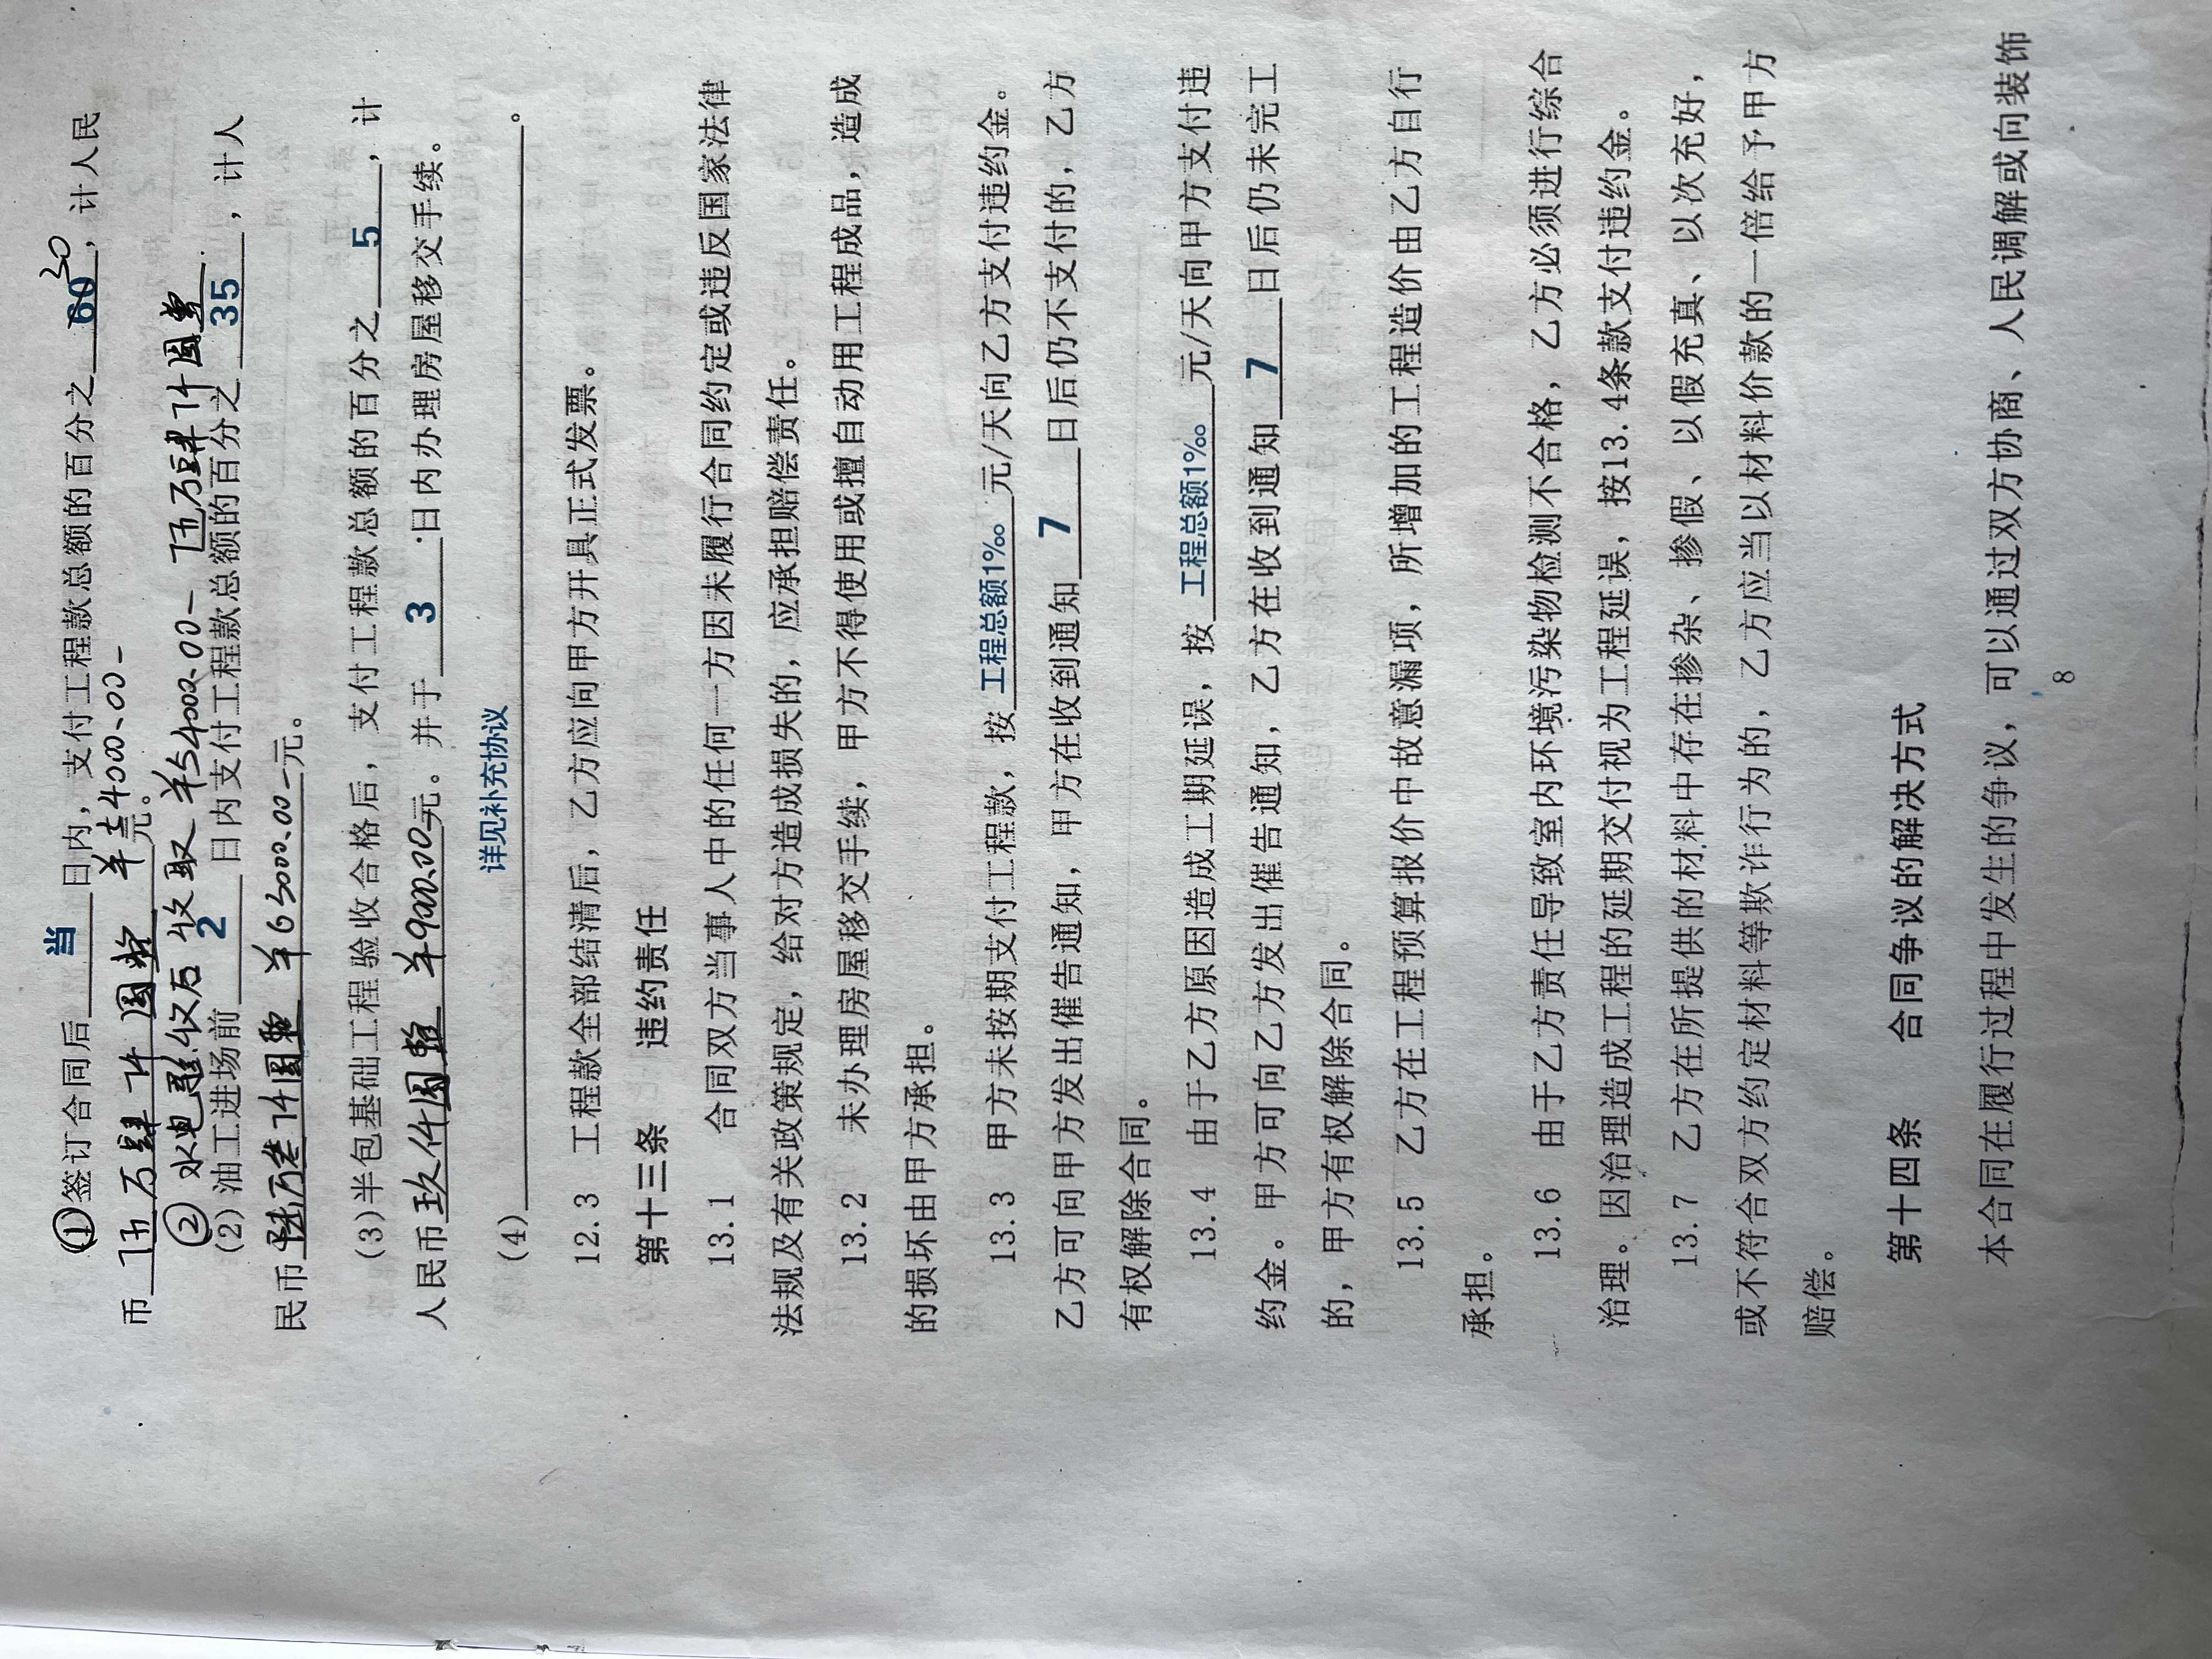 ①签订合同后 当 日内，支付工程款总额的百分之 60 30，计人民
币 伍万肆仟圆整 羊54000.00-元。
② 水电验收后收取 羊54000.00- 伍万肆仟圆整.
(2)油工进场前 2 日内支付工程款总额的百分之 35，计人
民币 陆万叁仟圆整 羊63000.00-元。
(3)半包基础工程验收合格后，支付工程款总额的百分之 5，计
人民币 玖仟圆整 羊9000.00元。并于 3 日内办理房屋移交手续。
(4) 详见补充协议。
12.3 工程款全部结清后，乙方应向甲方开具正式发票。
第十三条 违约责任
13.1 合同双方当事人中的任何一方因未履行合同约定或违反国家法律
法规及有关政策规定，给对方造成损失的，应承担赔偿责任。
13.2 未办理房屋移交手续，甲方不得使用或擅自动用工程成品，造成
的损坏由甲方承担。
13.3 甲方未按期支付工程款，按 工程总额1‰ 元/天向乙方支付违约金。
乙方可向甲方发出催告通知，甲方在收到通知 7 日后仍不支付的，乙方
有权解除合同。
13.4 由于乙方原因造成工期延误，按 工程总额1‰ 元/天向甲方支付违
约金。甲方可向乙方发出催告通知，乙方在收到通知 7 日后仍未完工
的，甲方有权解除合同。
13.5 乙方在工程预算报价中故意漏项，所增加的工程造价由乙方自行
承担。
13.6 由于乙方责任导致室内环境污染物检测不合格，乙方必须进行综合
治理。因治理造成工程的延期交付视为工程延误，按13.4条款支付违约金。
13.7 乙方在所提供的材料中存在掺杂、掺假、以假充真、以次充好，
或不符合双方约定材料等欺诈行为的，乙方应当以材料价款的一倍给予甲方
赔偿。
第十四条 合同争议的解决方式
本合同在履行过程中发生的争议，可以通过双方协商、人民调解或向装饰
8